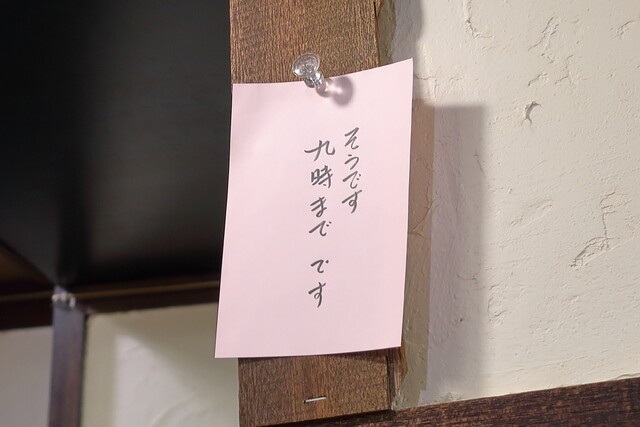 そうです
九時まで です